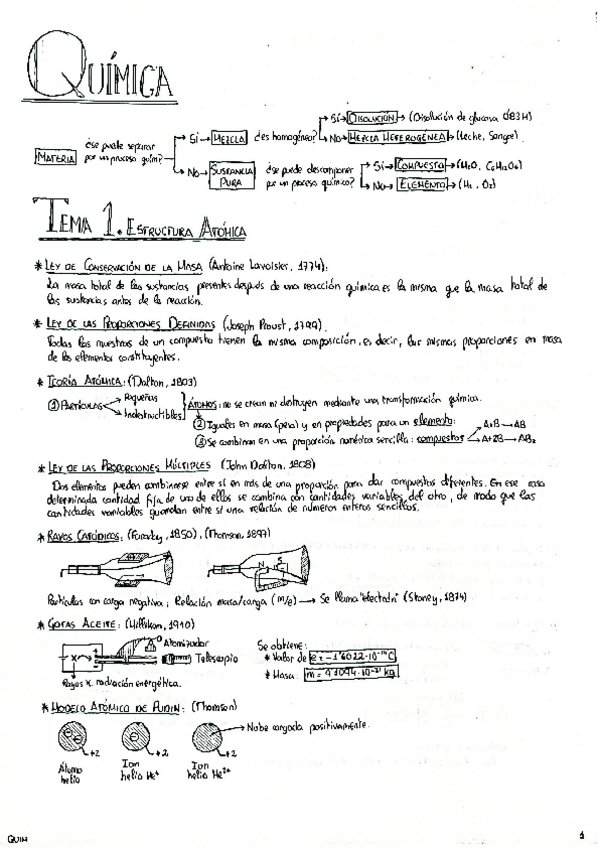 QUÍMICA
MATERIA
¿se puede separar
por un proceso quím?
Sí → MEZCLA → ¿es homogénea?
Sí → DISOLUCIÓN → (Disolución de glucosa
No → MEZCLA HETEROGÉNEA → (Leche, Sangre)
No → SUSTANCIA PURA
¿se puede descomponer
por un proceso químico?
Sí → COMPUESTO → (H₂O, C₆H₁₂O₆)
No → ELEMENTO → (H₂, O₂)
TEMA 1. ESTRUCTURA ATÓMICA
* LEY DE CONSERVACIÓN DE LA MASA (Antoine Lavoisier, 1774):
La masa total de las sustancias presentes después de una reacción química es la misma que la masa total de
las sustancias antes de la reacción.
* LEY DE LAS PROPORCIONES DEFINIDAS (Joseph Proust, 1799).
Todas las muestras de un compuesto tienen la misma composición, es decir, las mismas proporciones en masa
de los elementos constituyentes.
* TEORÍA ATÓMICA: (Dalton, 1803)
① PARTÍCULAS
Pequeñas
Indestructibles
ÁTOMOS: no se crean ni destruyen mediante una transformación química.
② Iguales en masa (peso) y en propiedades para un elemento.
③ Se combinan en una proporción numérica sencilla: compuestos
A+B → AB
A+2B → AB₂
* LEY DE LAS PROPORCIONES MÚLTIPLES (John Dalton, 1808)
Dos elementos pueden combinarse entre sí en más de una proporción para dar compuestos diferentes. En ese caso
determinada cantidad fija de uno de ellos se combina con cantidades variables del otro, de modo que las
cantidades variables guardan entre sí una relación de números enteros sencillos.
* RAYOS CATÓDICOS: (Faraday, 1850), (Thomson, 1897)
N
S
Partículas con carga negativa; Relación masa/carga (m/e) → Se llama "electrón" (Stoney, 1874)
* GOTAS ACEITE: (Millikan, 1910)
Atomizador
Telescopio
X
Rayos X. radiación energética.
Se obtiene:
* Valor de e = -1'6022·10⁻¹⁹ C
* Masa: m = 9'1094·10⁻³¹ kg
* MODELO ATÓMICO DE PUDIN: (Thomson)
Nube cargada positivamente.
+2
+2
+2
Átomo
helio
Ion
helio He⁺
Ion
helio He²⁺
QUIM
1